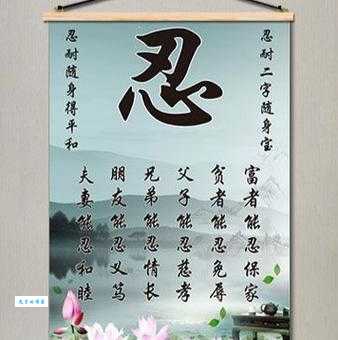 忍
忍耐二字随身宝
忍耐随身得平和
富者能忍保家
贫者能忍免辱
父子能忍慈孝
兄弟能忍情长
朋友能忍义笃
夫妻能忍和睦